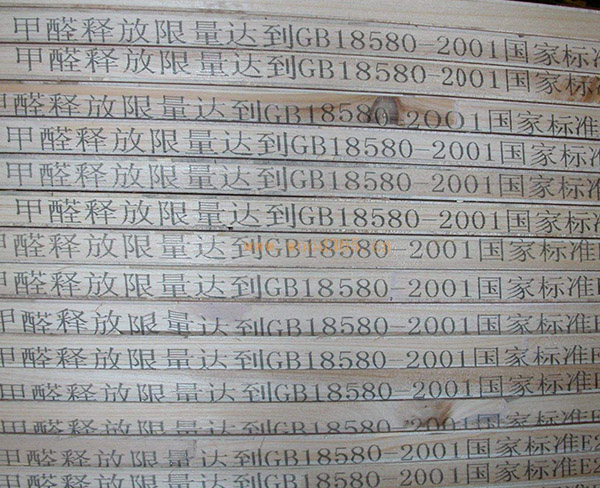 甲醛释放限量达到GB18580-2001国家标准
甲醛释放限量达到GB18580-2001国家标准
甲醛释放限量达到GB18580-2001国家标准
甲醛释放限量达到GB18580-2001国家标准
甲醛释放限量达到GB18580-2001国家标准
甲醛释放限量达到GB18580-2001国家标准
甲醛释放限量达到GB18580-2001国家标准
甲醛释放限量达到GB18580-2001国家标准
甲醛释放限量达到GB18580-2001国家标准
甲醛释放限量达到GB18580-2001国家标准E
甲醛释放限量达到GB18580-2001国家标准E
甲醛释放限量达到GB18580-2001国家标准E
甲醛释放限量达到GB18580-2001国家标准E2
甲醛释放限量达到GB18580-2001国家标准E2